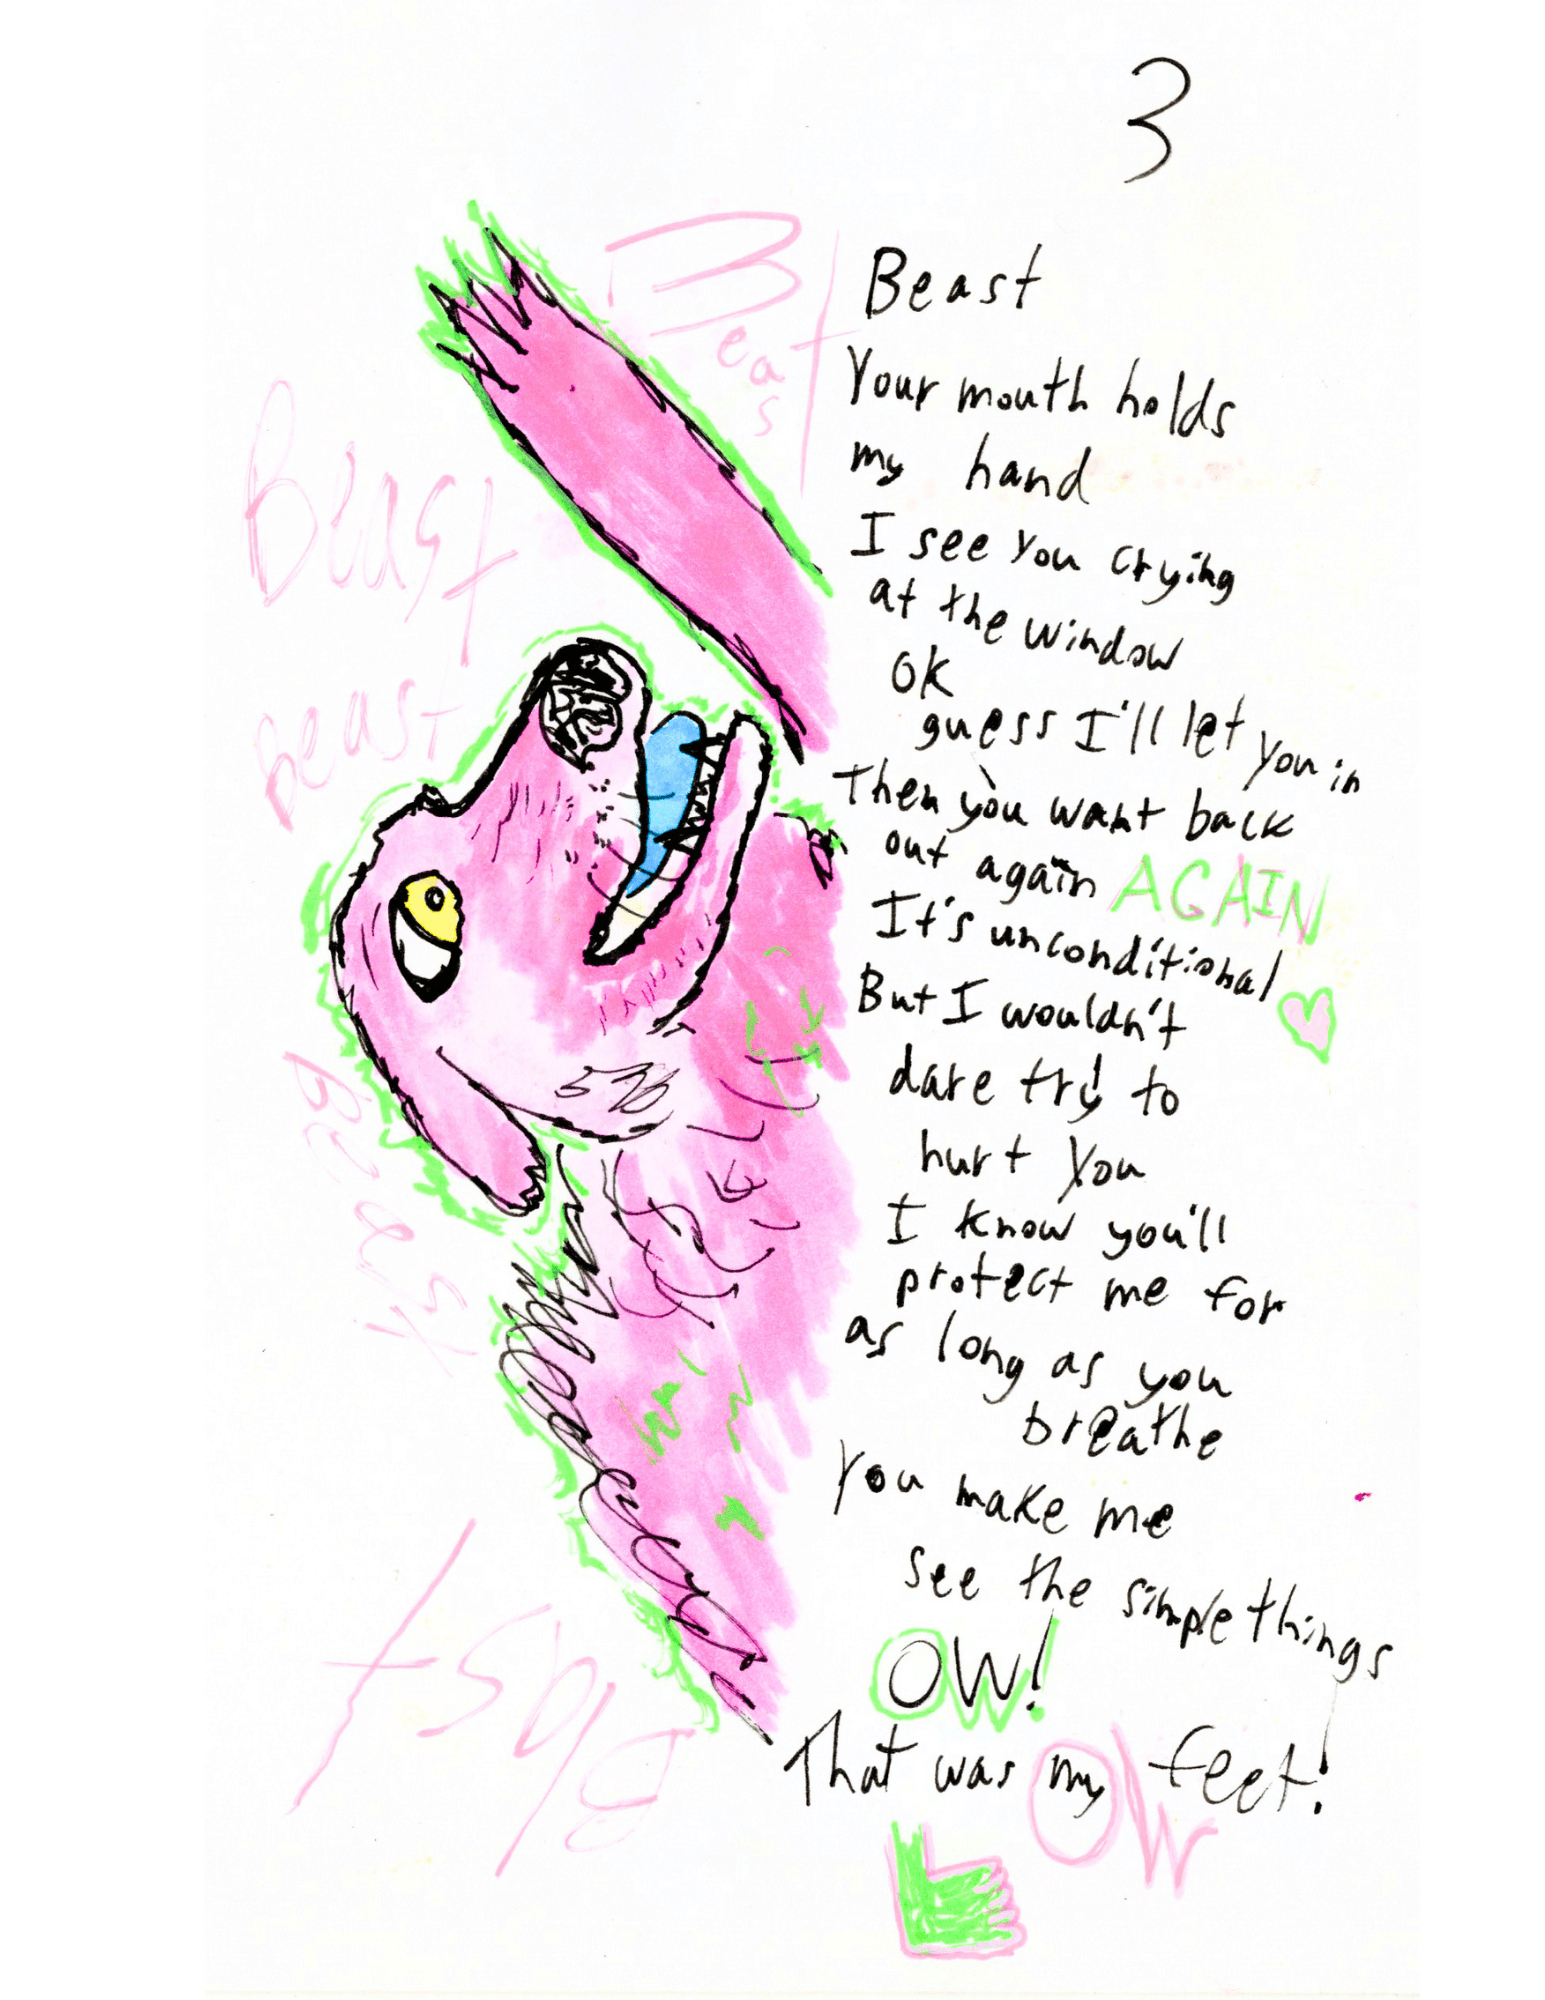 3
Beast
Beast
Beast
Beast
Beast
Beast
Your mouth holds
my hand
I see you crying
at the window
OK
guess I'll let you in
Then you want back
out again AGAIN
It's unconditional
But I wouldn't
dare try to
hurt you
I know you'll
protect me for
as long as you
breathe
You make me
see the simple things
OW!
That was my feet!
OW